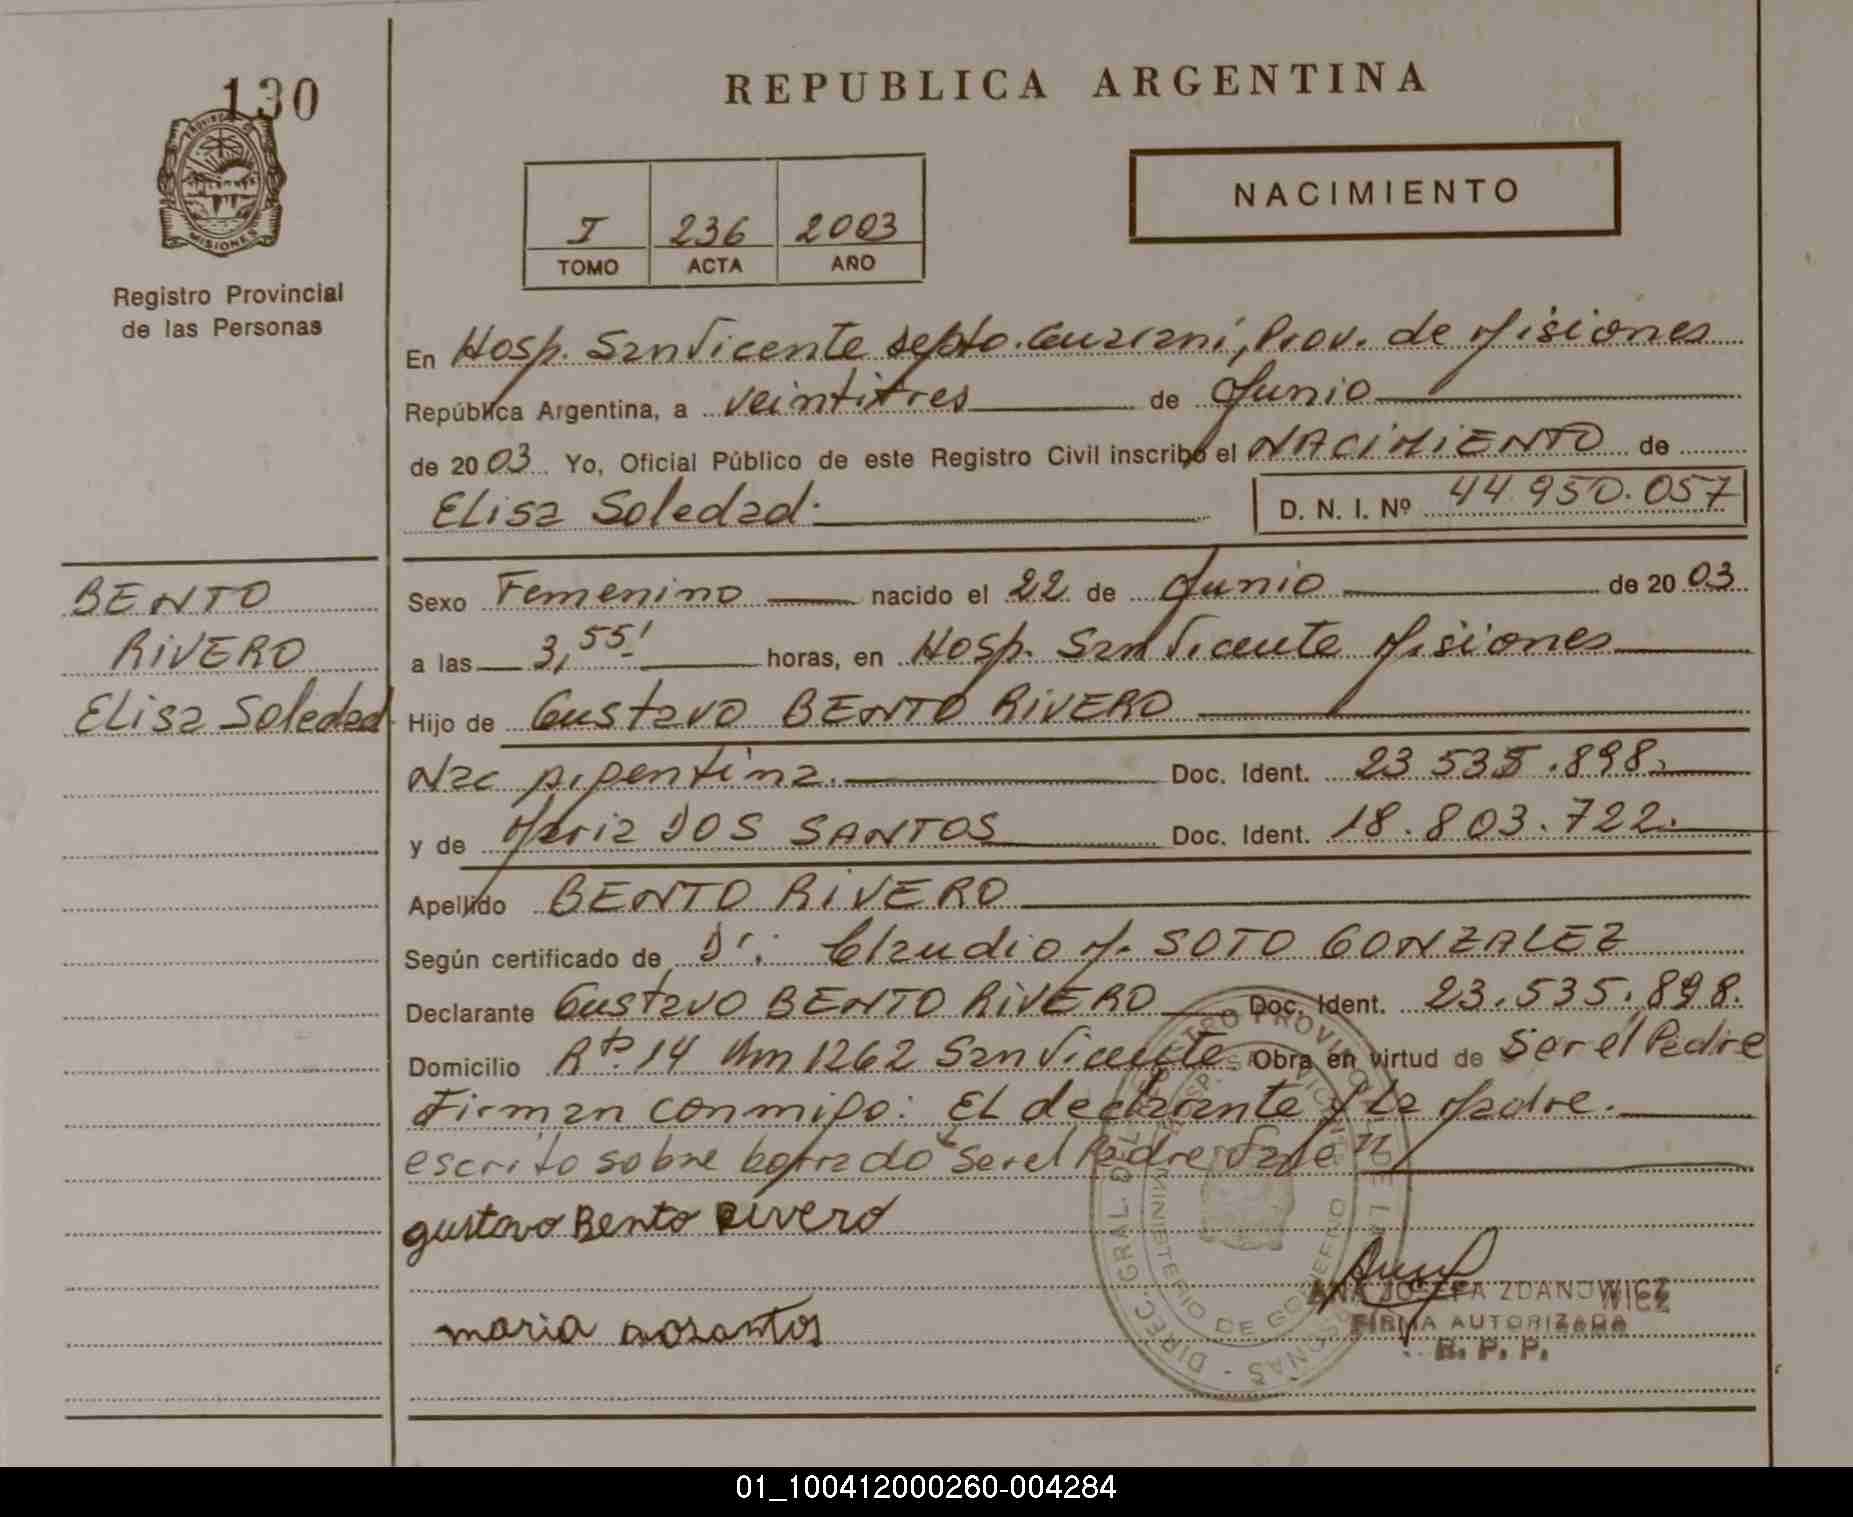 130
PROVINCIA DE
MISIONES
Registro Provincial
de las Personas
REPUBLICA ARGENTINA
NACIMIENTO
I 236 2003
TOMO ACTA AÑO
En Hosp. San Vicente depto. Guarani, Prov. de Misiones
República Argentina, a veintitres de Junio
de 2003 Yo, Oficial Público de este Registro Civil inscribo el NACIMIENTO de
Elisa Soledad. D. N. I. Nº 44.950.057
BENTO
RIVERO
Elisa Soledad
Sexo Femenino nacido el 22 de Junio de 2003
a las 3,55' horas, en Hosp. San Vicente Misiones
Hijo de Gustavo BENTO RIVERO
Nac Argentina. Doc. Ident. 23.535.898.
y de Maria DOS SANTOS Doc. Ident. 18.803.722.
Apellido BENTO RIVERO
Según certificado de Dr. Claudio M. SOTO GONZALEZ
Declarante Gustavo BENTO RIVERO Doc. Ident. 23.535.898.
Domicilio Rta. 14 Km 1262 San Vicente Obra en virtud de Ser el Padre
Firman conmigo: EL declarante y La Madre.
escrito sobre borrado "Ser el Padre, Vale"
gustavo Bento Rivero
maria dosantos
DIREC. GRAL. DEL REGISTRO PROVINCIAL DE LAS PERSONAS
HOSP. SAN VICENTE
MINISTERIO DE GOBIERNO
ANA JOSEFA ZDANOWICZ
FIRMA AUTORIZADA
R. P. P.
01_100412000260-004284